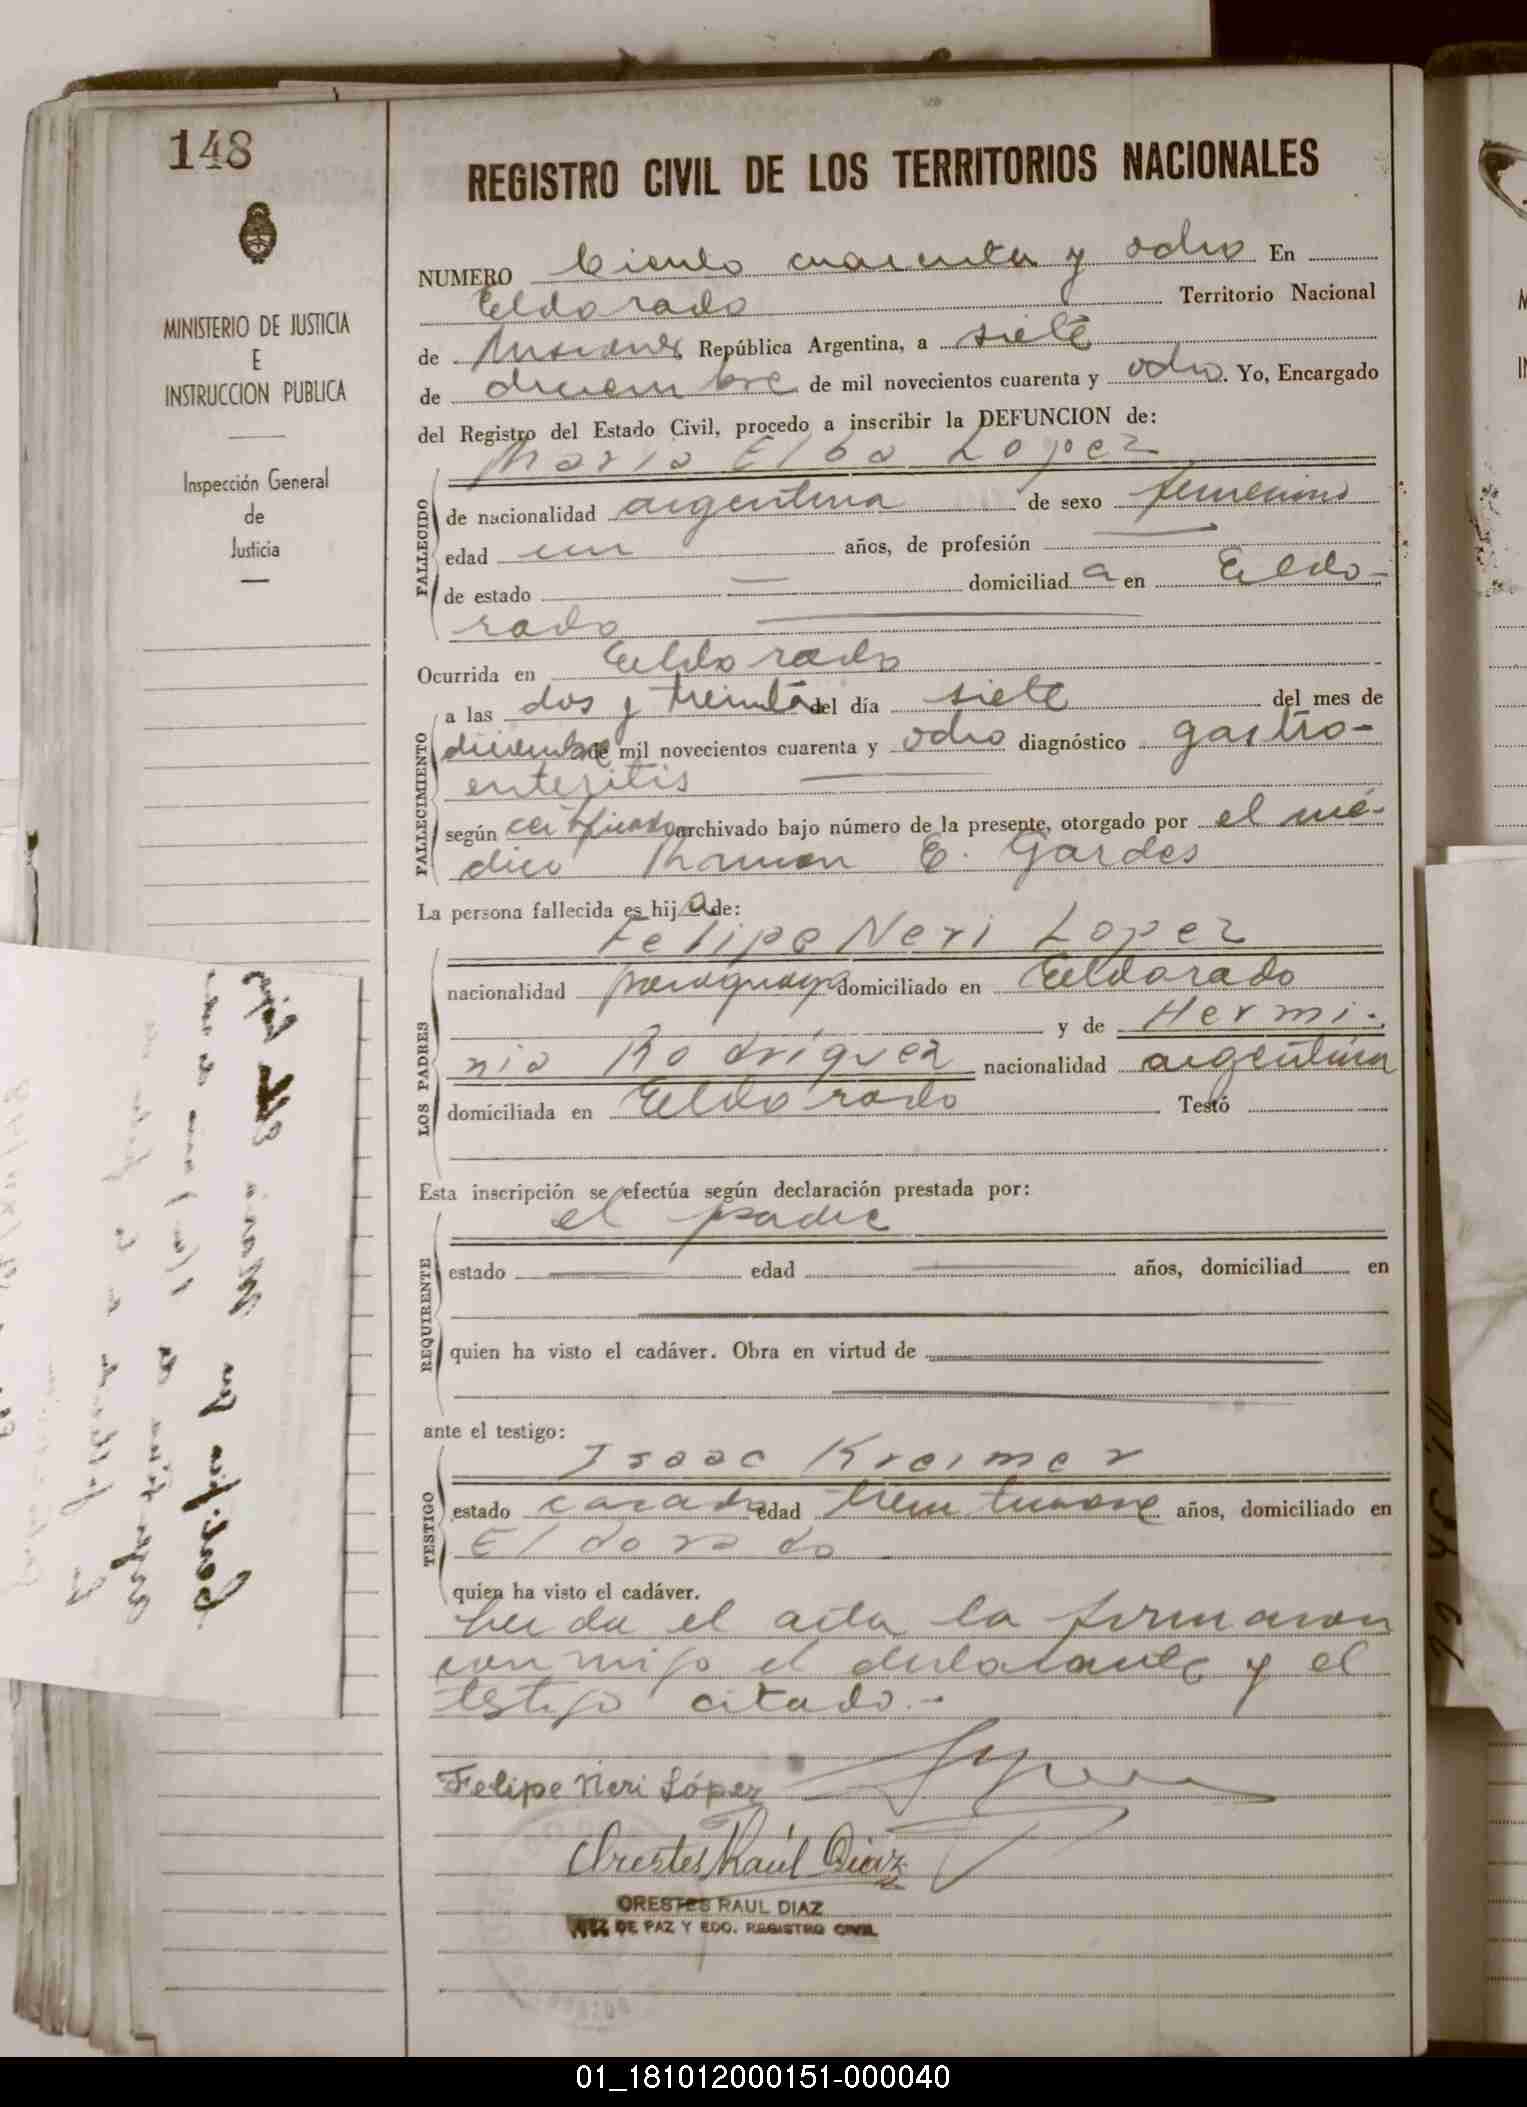 148
REGISTRO CIVIL DE LOS TERRITORIOS NACIONALES
MINISTERIO DE JUSTICIA
E
INSTRUCCION PUBLICA
Inspección General
de
Justicia
NUMERO Ciento cuarenta y ocho En
Eldorado Territorio Nacional
de Misiones República Argentina, a siete
de diciembre de mil novecientos cuarenta y ocho. Yo, Encargado
del Registro del Estado Civil, procedo a inscribir la DEFUNCION de:
Maria Elba Lopez
FALLECIDO
de nacionalidad argentina de sexo femenino
edad un años, de profesión
de estado domiciliad a en Eldo-
rado
Ocurrida en Eldorado
FALLECIMIENTO
a las dos y treinta del día siete del mes de
diciembre de mil novecientos cuarenta y ocho diagnóstico gastro-
enteritis
según certificado archivado bajo número de la presente, otorgado por el mé-
dico Ramon E. Gardes
La persona fallecida es hij a de:
Felipe Neri Lopez
LOS PADRES
nacionalidad paraguaya domiciliado en Eldorado
y de Hermi-
nia Rodriguez nacionalidad argentina
domiciliada en Eldorado Testó
Esta inscripción se efectúa según declaración prestada por:
el padre
REQUIRENTE
estado edad años, domiciliad en
quien ha visto el cadáver. Obra en virtud de
ante el testigo:
Isaac Kreimer
TESTIGO
estado casado edad treintinueve años, domiciliado en
Eldorado
quien ha visto el cadáver.
Leida el acta la firmaron
conmigo el declarante y el
testigo citado.-
Felipe Neri López
Orestes Raúl Diaz
ORESTES RAUL DIAZ
JUEZ DE PAZ Y EDO. REGISTRO CIVIL
01_181012000151-000040